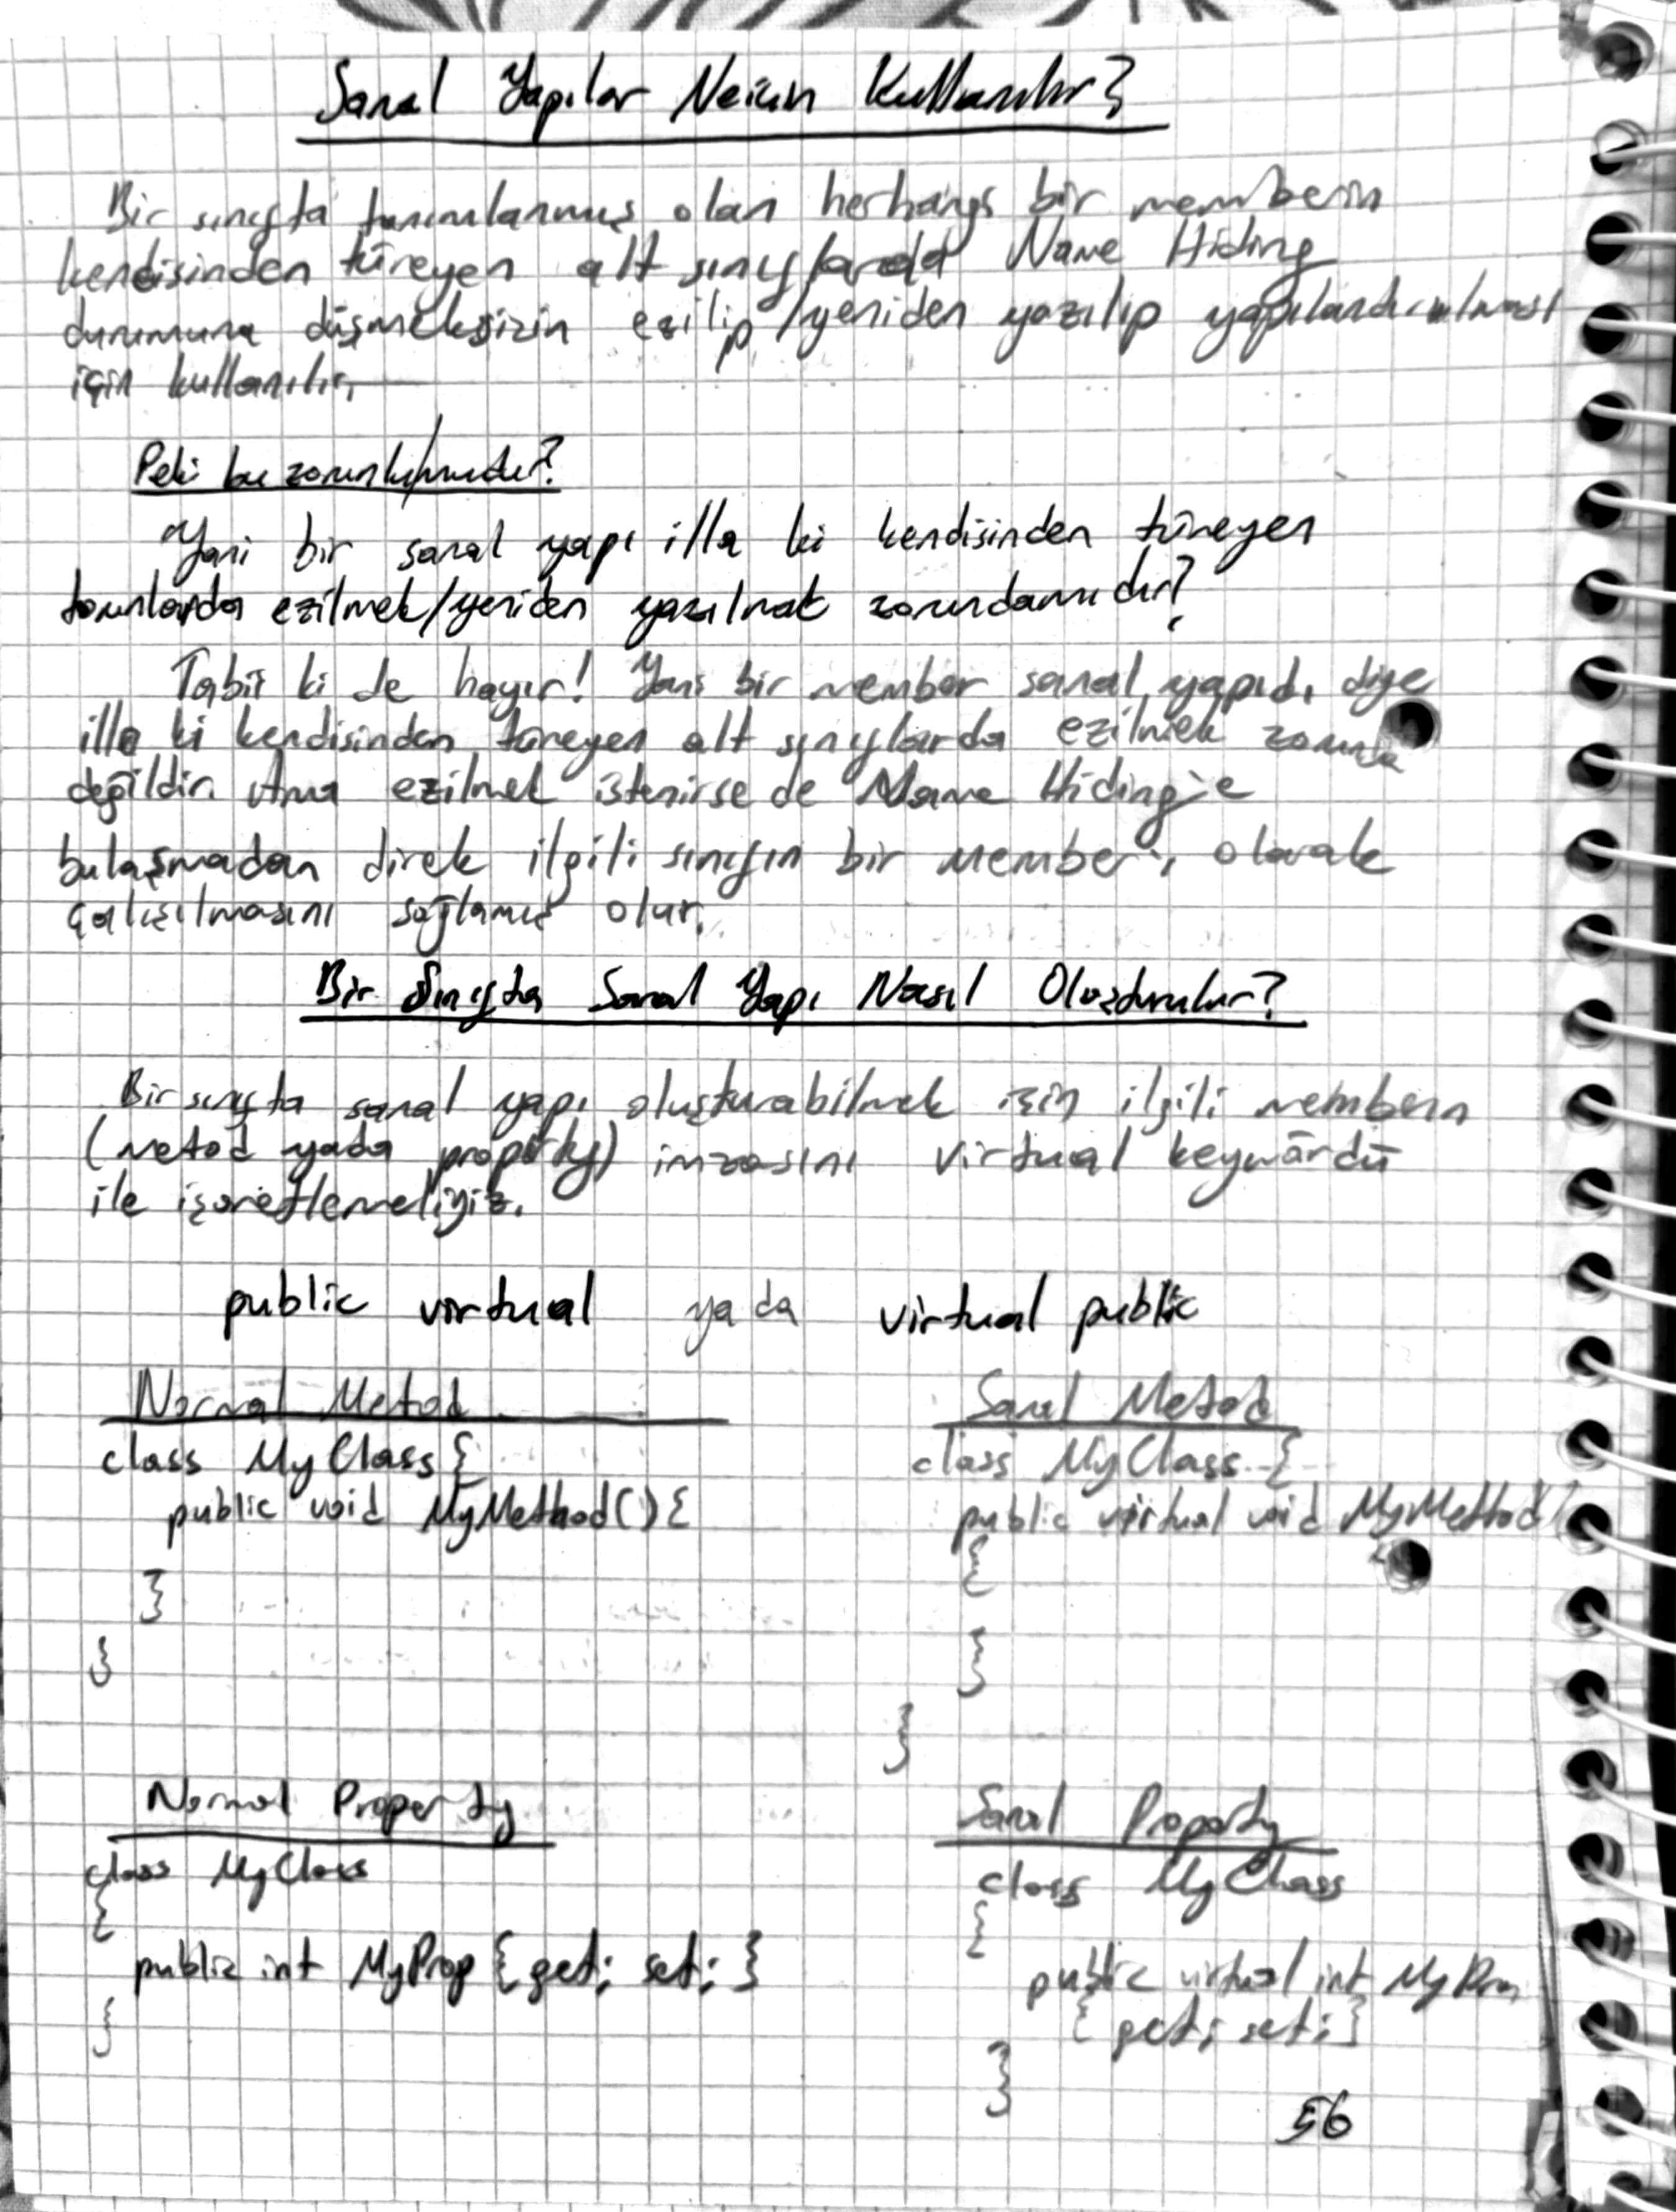 Sanal Yapılar Neiçin Kullanılır?
Bir sınıfta tanımlanmış olan herhangi bir memberın
kendisinden türeyen alt sınıflarda Name Hiding
durumuna düşmeksizin ezilip/yeniden yazılıp yapılandırılması
için kullanılır.
Peki bu zorunlumudur?
Yani bir sanal yapı illa ki kendisinden türeyen
torunlarda ezilmek/yeniden yazılmak zorundamıdır?
Tabii ki de hayır! Yani bir member sanal yapıdı diye
illa ki kendisinden türeyen alt sınıflarda ezilmek zorunda
değildir. Ama ezilmek istenirse de Name Hiding'e
bulaşmadan direk ilgili sınıfın bir member'ı olarak
çalışılmasını sağlamış olur.
Bir Sınıfta Sanal Yapı Nasıl Oluşturulur?
Bir sınıfta sanal yapı oluşturabilmek için ilgili memberın
(metod yada property) imzasını virtual keywördü
ile işaretlemeliyiz.
public virtual yada virtual public
Normal Metod Sanal Metod
class MyClass{ class MyClass {
public void MyMethod(){ public virtual void MyMethod(
{
}
} }
}
Normal Property Sanal Property
class MyClass class MyClass
{ {
public int MyProp {get; set;} public virtual int MyProp
} {get; set;}
}
56